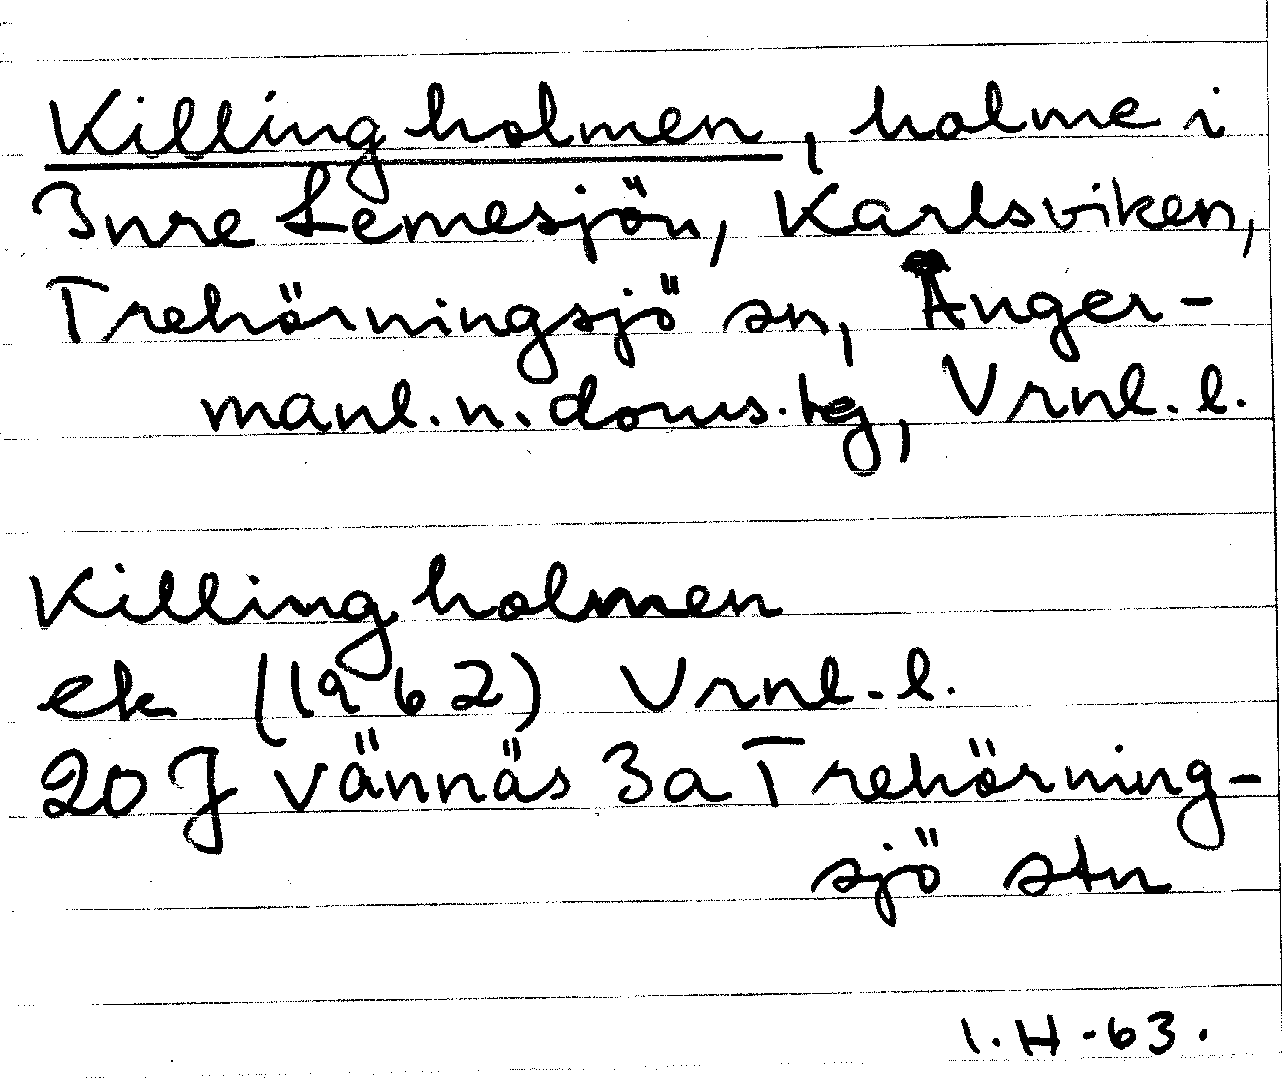 Killingholmen, holme i
Inre Lemesjön, Karlsviken,
Trehörningsjö sn, Ånger-
manl. n. doms. tg, Vrnl. l.
Killingholmen
ek (1962) Vrnl. l.
20 J Vännäs 3a Trehörning-
sjö stn
I. H -63.